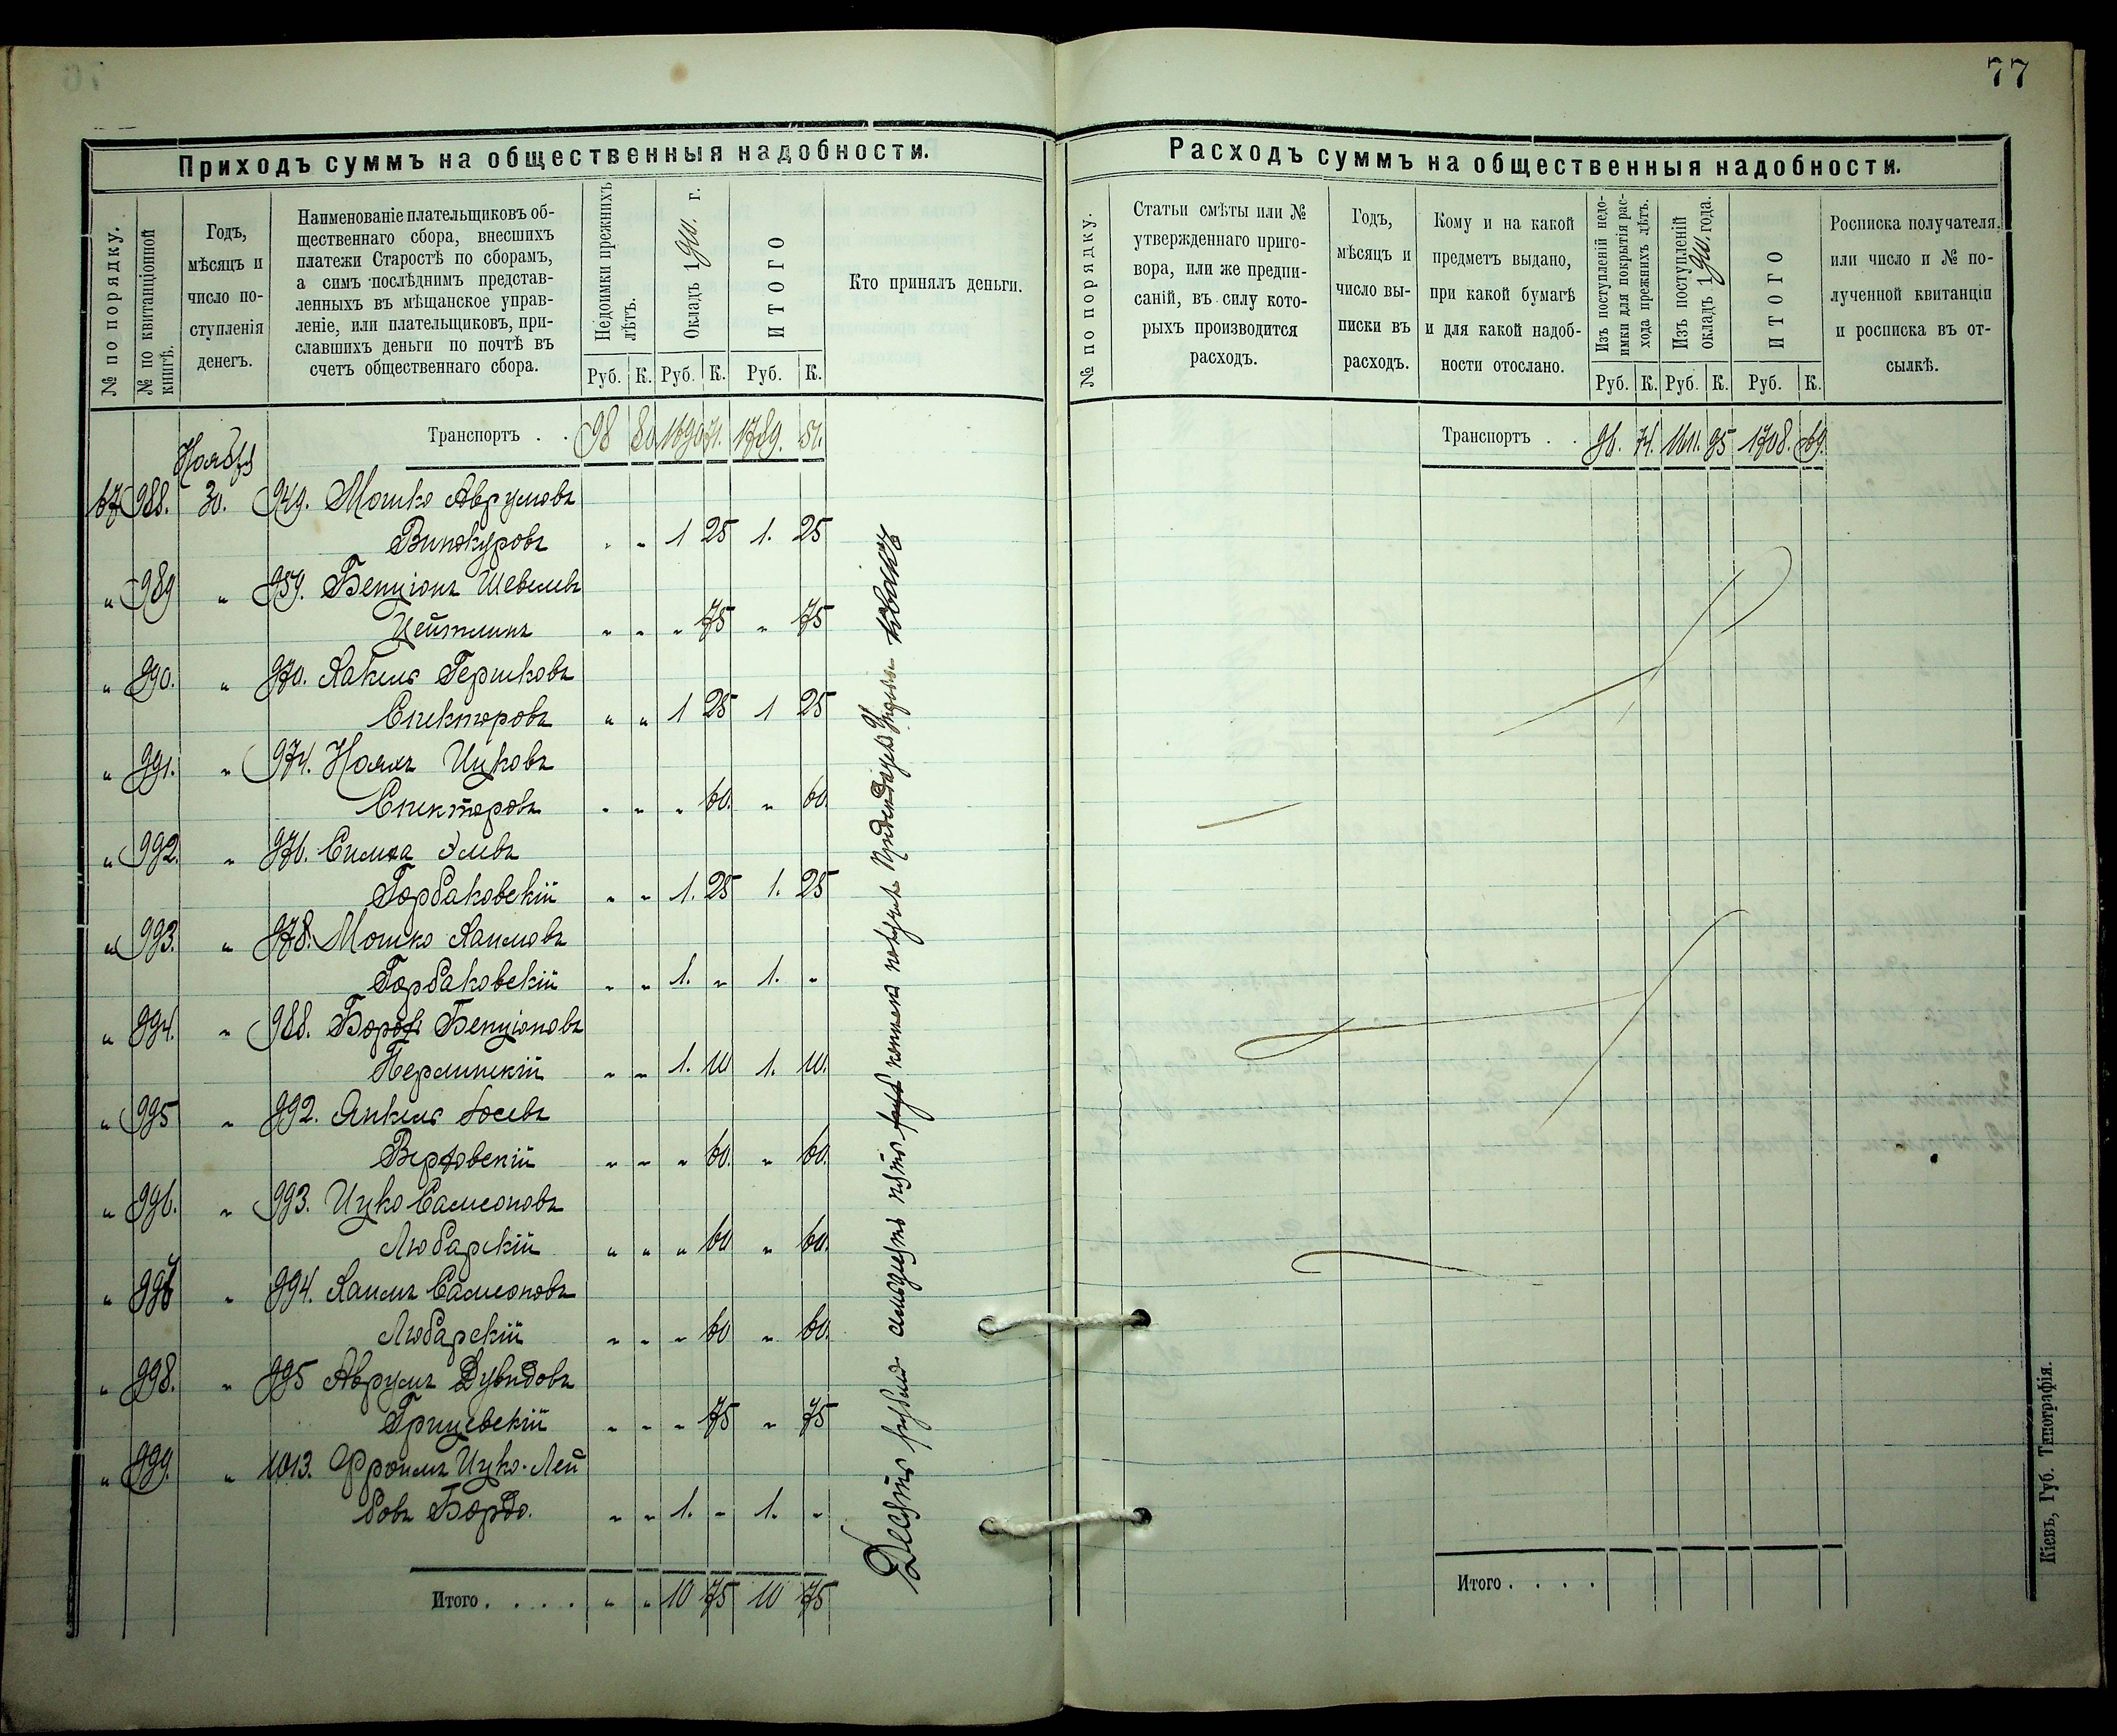 77
Приходъ суммъ на общественныя надобности.
№ по порядку.
№ по квитанціонной книгѣ.
Годъ,
мѣсяцъ и
число по-
ступленія
денегъ.
Наименованіе плательщиковъ об-
щественнаго сбора, внесшихъ
платежи Старостѣ по сборамъ,
а симъ послѣднимъ представ-
ленныхъ въ мѣщанское управ-
леніе, или плательщиковъ, при-
славшихъ деньги по почтѣ въ
счетъ общественнаго сбора.
Недоимки прежнихъ
лѣтъ.
Окладъ 1900. г.
ИТОГО
Кто принялъ деньги.
Руб. К. Руб. К. Руб. К.
Транспортъ . . 98 80 1690 71. 1789. 51.
Ноября
67 988. 30. 949. Мошко Аврумовъ
Винокуровъ „ „ 1 25 1. 25
„ 989 „ 959. Бенціонъ Шевелевъ
Цейтлинъ „ „ „ 75 „ 75
„ 990. „ 970. Хакель Гершковъ
Спекторовъ „ „ 1 25 1 25
„ 991. „ 974. Ноахъ Ицковъ
Спекторовъ „ „ „ 60. „ 60.
„ 992. „ 976. Симха Элевъ
Горбаковскій „ „ 1. 25 1. 25
„ 993. „ 978. Мошко Хаимовъ
Горбаковскій „ „ 1. „ 1. „
„ 994. „ 988. Борох Бенціоновъ
Перлинскій „ „ 1. 10 1. 10.
„ 995 „ 992. Янкель Іосевъ
Верховскій „ „ „ 60. „ 60.
„ 996. „ 993. Ицко Самсоновъ
Любарскій „ „ „ 60 „ 60.
„ 997 „ 994. Хаимъ Самсоновъ
Любарскій „ „ „ 60 „ 60.
„ 998. „ 995 Аврумъ Дувидовъ
Грицевскій „ „ „ 75 „ 75
„ 999. „ 1013. Фроимъ Ицко-Лей
бовъ Бордо. „ „ 1. „ 1. „
Итого . . . . „ „ 10 75 10 75
Десять рублей семьдесят пять копеек получил
Расходъ суммъ на общественныя надобности.
№ по порядку.
Статьи смѣты или №
утвержденнаго приго-
вора, или же предпи-
саній, въ силу кото-
рыхъ производится
расходъ.
Годъ,
мѣсяцъ и
число вы-
писки въ
расходъ.
Кому и на какой
предметъ выдано,
при какой бумагѣ
и для какой надоб-
ности отослано.
Изъ поступленій недо-
имки для покрытія рас-
хода прежнихъ лѣтъ.
Изъ поступленій
окладъ 1900. года.
ИТОГО
Росписка получателя,
или число и № по-
лученной квитанціи
и росписка въ от-
сылкѣ.
Руб. К. Руб. К. Руб. К.
Транспортъ . . 96. 74. 1611. 95 1708. 69.
Итого . . . .
Кіевъ, Губ. Типографія.